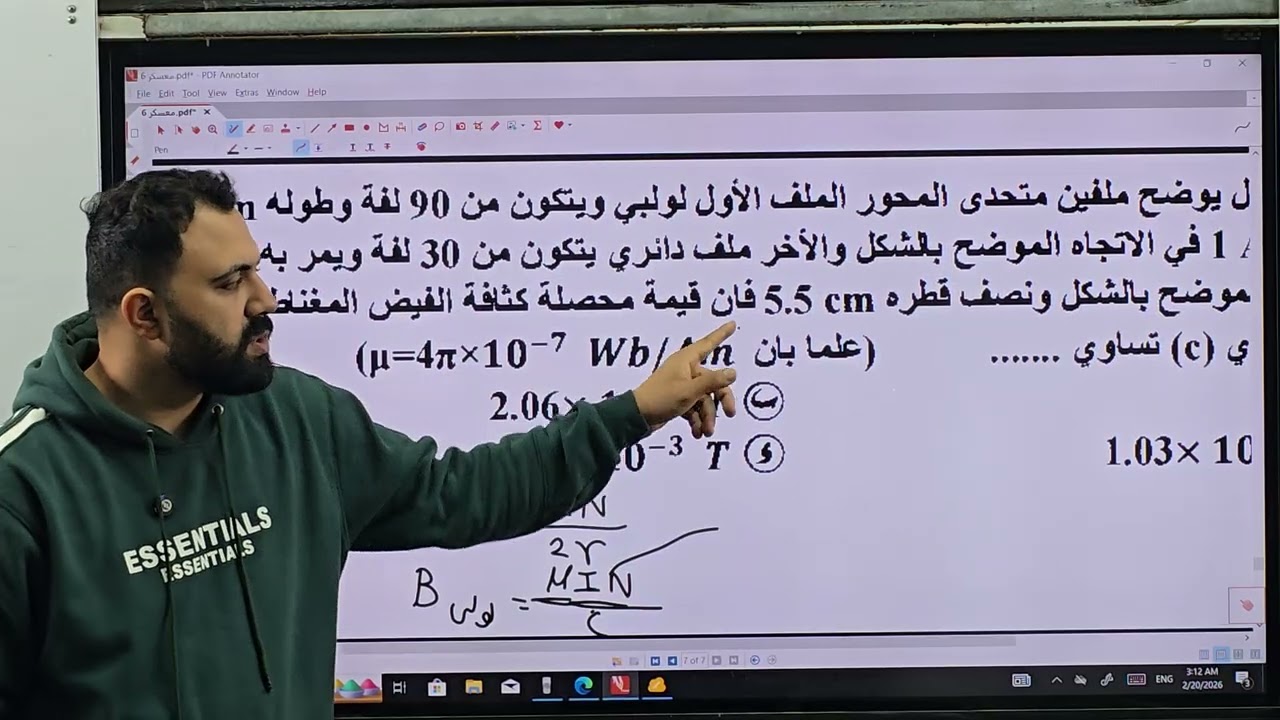 معسكر 6.pdf* - PDF Annotator
File Edit Tool View Extras Window Help
معسكر 6.pdf* ×
Pen
ل يوضح ملفين متحدى المحور الملف الأول لولبي ويتكون من 90 لفة وطوله
1 في الاتجاه الموضح بالشكل والأخر ملف دائري يتكون من 30 لفة ويمر به
موضح بالشكل ونصف قطره 5.5 cm فان قيمة محصلة كثافة الفيض
ي (c) تساوي ....... (علما بان μ=4π×10⁻⁷ Wb/Am)
ب 2.06×
1.03× 10
د 10⁻³ T
N
2r
B لولبى = μIN
ESSENTIALS
ESSENTIALS
7 of 7
ENG
3:12 AM
2/20/2026
3